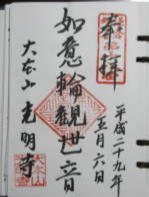 奉拝
平成二十九年
五月六日
如意輪観世音
大本山光明寺